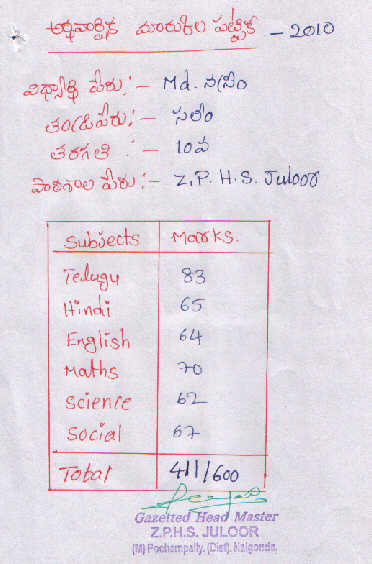 అర్థవార్షిక మారుకుల పట్టిక - 2010
విధ్యార్థి పేరు:- Md. నసీం
తండ్రిపేరు:- సలీం
తరగతి :- 10వ
పాఠశాల పేరు:- Z.P.H.S. Juloor
Subjects Marks.
Telugu 83
Hindi 65
English 64
Maths 70
Science 62
Social 67
Total 411/600
Gazetted Head Master
Z.P.H.S. JULOOR
(M) Pochampally, (Dist). Nalgonda.